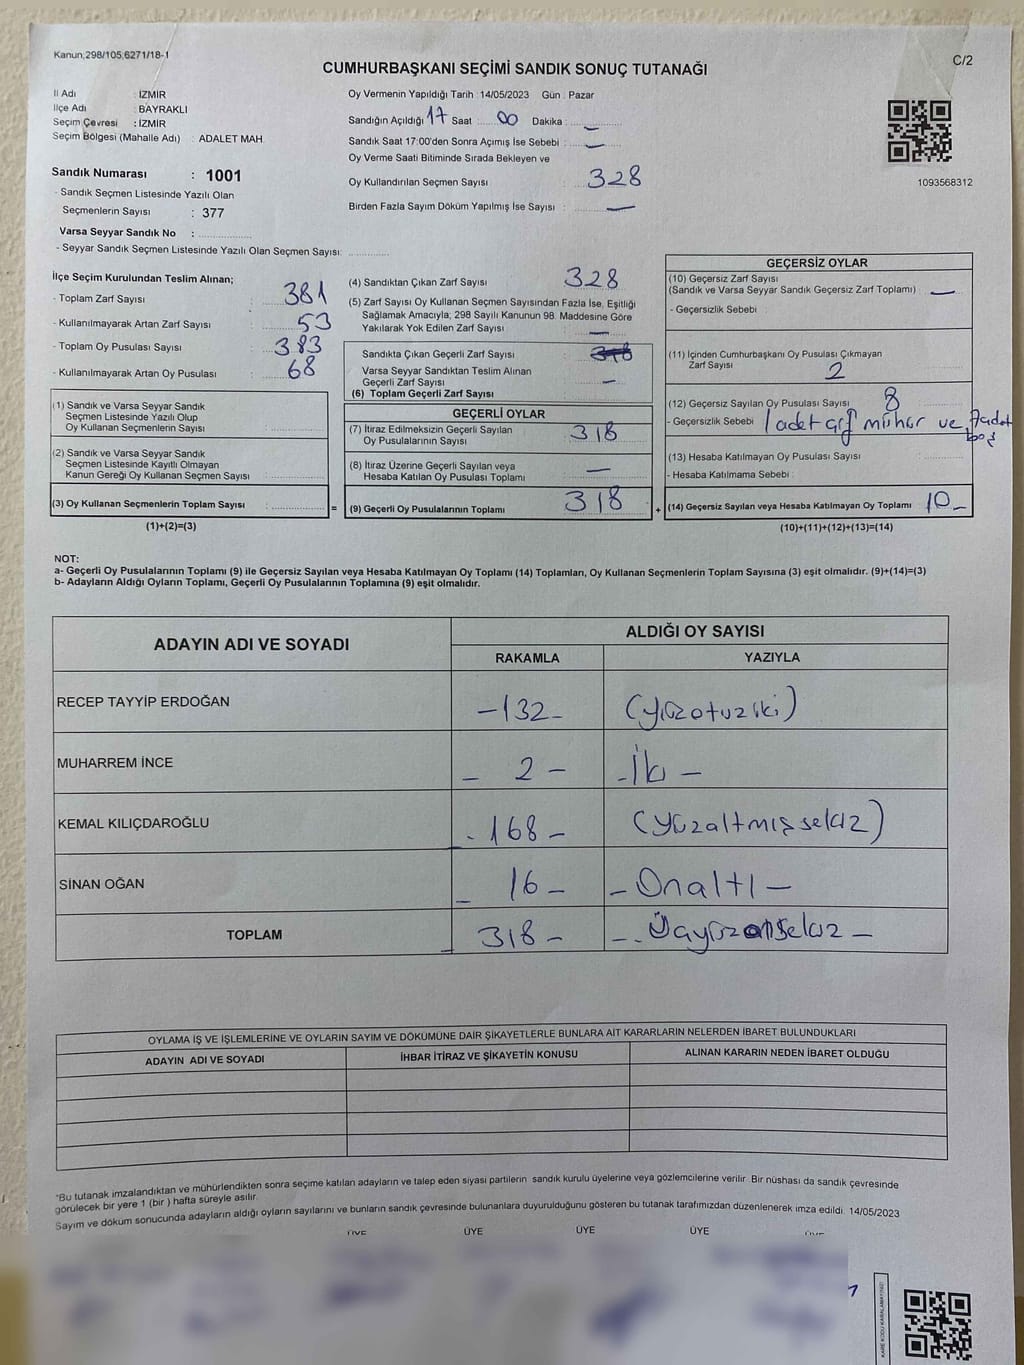 Kanun;298/105;6271/18-1
C/2
CUMHURBAŞKANI SEÇİMİ SANDIK SONUÇ TUTANAĞI
İl Adı : İZMİR
İlçe Adı : BAYRAKLI
Seçim Çevresi : İZMİR
Seçim Bölgesi (Mahalle Adı) : ADALET MAH.
Sandık Numarası : 1001
- Sandık Seçmen Listesinde Yazılı Olan
Seçmenlerin Sayısı : 377
Varsa Seyyar Sandık No :
- Seyyar Sandık Seçmen Listesinde Yazılı Olan Seçmen Sayısı:
Oy Vermenin Yapıldığı Tarih : 14/05/2023 Gün : Pazar
Sandığın Açıldığı 17 Saat : 00 Dakika : —
Sandık Saat 17:00'den Sonra Açımış İse Sebebi : —
Oy Verme Saati Bitiminde Sırada Bekleyen ve
Oy Kullandırılan Seçmen Sayısı : 328
Birden Fazla Sayım Döküm Yapılmış İse Sayısı : —
1093568312
İlçe Seçim Kurulundan Teslim Alınan;
- Toplam Zarf Sayısı : 381
- Kullanılmayarak Artan Zarf Sayısı : 53
- Toplam Oy Pusulası Sayısı : 383
- Kullanılmayarak Artan Oy Pusulası : 68
(1) Sandık ve Varsa Seyyar Sandık
Seçmen Listesinde Yazılı Olup
Oy Kullanan Seçmenlerin Sayısı :
(2) Sandık ve Varsa Seyyar Sandık
Seçmen Listesinde Kayıtlı Olmayan
Kanun Gereği Oy Kullanan Seçmen Sayısı :
(3) Oy Kullanan Seçmenlerin Toplam Sayısı : =
(1)+(2)=(3)
(4) Sandıktan Çıkan Zarf Sayısı : 328
(5) Zarf Sayısı Oy Kullanan Seçmen Sayısından Fazla İse, Eşitliği
Sağlamak Amacıyla; 298 Sayılı Kanunun 98. Maddesine Göre
Yakılarak Yok Edilen Zarf Sayısı : —
Sandıkta Çıkan Geçerli Zarf Sayısı :
Varsa Seyyar Sandıktan Teslim Alınan
Geçerli Zarf Sayısı : —
(6) Toplam Geçerli Zarf Sayısı :
GEÇERLİ OYLAR
(7) İtiraz Edilmeksizin Geçerli Sayılan
Oy Pusulalarının Sayısı : 318
(8) İtiraz Üzerine Geçerli Sayılan veya
Hesaba Katılan Oy Pusulası Toplamı : —
(9) Geçerli Oy Pusulalarının Toplamı : 318 +
GEÇERSİZ OYLAR
(10) Geçersiz Zarf Sayısı
(Sandık ve Varsa Seyyar Sandık Geçersiz Zarf Toplamı) : —
- Geçersizlik Sebebi :
(11) İçinden Cumhurbaşkanı Oy Pusulası Çıkmayan
Zarf Sayısı : 2
(12) Geçersiz Sayılan Oy Pusulası Sayısı : 8
- Geçersizlik Sebebi : 1 adet çift mühür ve 7 adet
boş
(13) Hesaba Katılmayan Oy Pusulası Sayısı :
- Hesaba Katılmama Sebebi :
(14) Geçersiz Sayılan veya Hesaba Katılmayan Oy Toplamı : 10 –
(10)+(11)+(12)+(13)=(14)
NOT:
a- Geçerli Oy Pusulalarının Toplamı (9) ile Geçersiz Sayılan veya Hesaba Katılmayan Oy Toplamı (14) Toplamları, Oy Kullanan Seçmenlerin Toplam Sayısına (3) eşit olmalıdır. (9)+(14)=(3)
b- Adayların Aldığı Oyların Toplamı, Geçerli Oy Pusulalarının Toplamına (9) eşit olmalıdır.
ADAYIN ADI VE SOYADI
ALDIĞI OY SAYISI
RAKAMLA YAZIYLA
RECEP TAYYİP ERDOĞAN – 132 – (yüzotuziki)
MUHARREM İNCE – 2 – – İki –
KEMAL KILIÇDAROĞLU – 168 – (yüzaltmışsekiz)
SİNAN OĞAN – 16 – – Onaltı –
TOPLAM – 318 – – Üçyüzonsekiz –
OYLAMA İŞ VE İŞLEMLERİNE VE OYLARIN SAYIM VE DÖKÜMÜNE DAİR ŞİKAYETLERLE BUNLARA AİT KARARLARIN NELERDEN İBARET BULUNDUKLARI
ADAYIN ADI VE SOYADI İHBAR İTİRAZ VE ŞİKAYETİN KONUSU ALINAN KARARIN NEDEN İBARET OLDUĞU
*Bu tutanak imzalandıktan ve mühürlendikten sonra seçime katılan adayların ve talep eden siyasi partilerin sandık kurulu üyelerine veya gözlemcilerine verilir. Bir nüshası da sandık çevresinde
görülecek bir yere 1 (bir ) hafta süreyle asılır.
Sayım ve döküm sonucunda adayların aldığı oyların sayılarını ve bunların sandık çevresinde bulunanlara duyurulduğunu gösteren bu tutanak tarafımızdan düzenlenerek imza edildi. 14/05/2023
ÜYE ÜYE ÜYE ÜYE ÜYE
KARE KODU KARALAMAYINIZ!